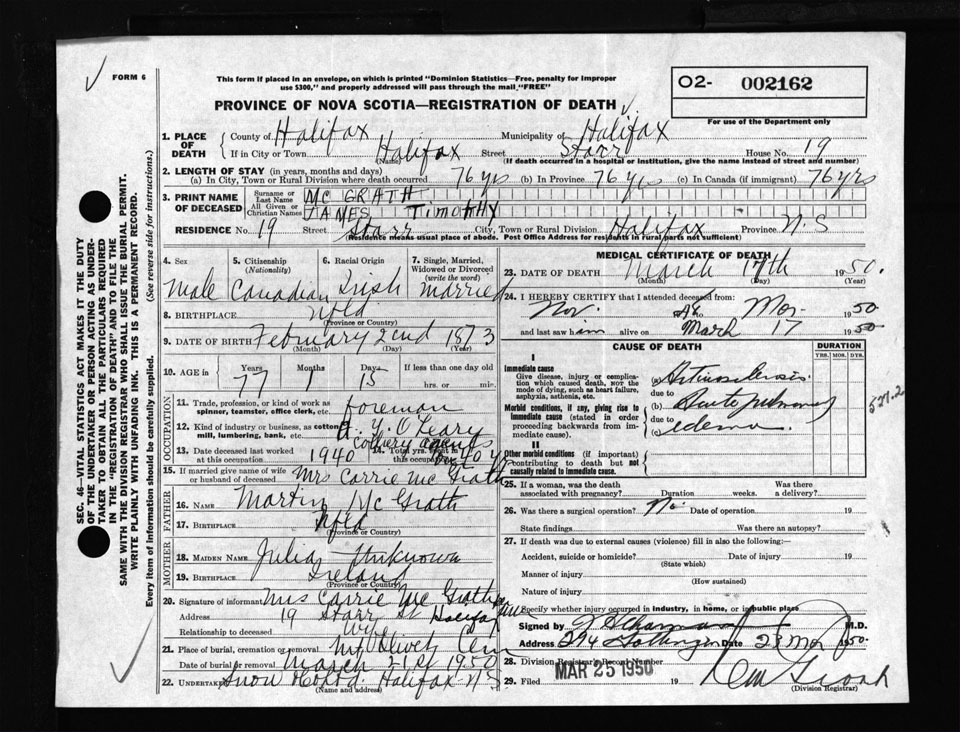 FORM 6
This form if placed in an envelope, on which is printed "Dominion Statistics—Free, penalty for improper
use $300," and properly addressed will pass through the mail "FREE"
O2- 002162
For use of the Department only
PROVINCE OF NOVA SCOTIA—REGISTRATION OF DEATH
1. PLACE OF DEATH County of Halifax Municipality of Halifax
If in City or Town Halifax Street Starr House No. 19
(Name) (If death occurred in a hospital or institution, give the name instead of street and number)
2. LENGTH OF STAY (in years, months and days)
(a) In City, Town or Rural Division where death occurred 76 yrs (b) In Province 76 yrs (c) In Canada (if immigrant) 76 yrs
3. PRINT NAME OF DECEASED Surname or Last Name Mc GRATH
All Given or Christian Names JAMES TIMOTHY
RESIDENCE No. 19 Street Starr City, Town or Rural Division Halifax Province N.S
(Residence means usual place of abode. Post Office Address for residents in rural parts not sufficient)
4. Sex 5. Citizenship (Nationality) 6. Racial Origin 7. Single, Married, Widowed or Divorced (write the word)
Male Canadian Irish Married
8. BIRTHPLACE Nfld
(Province or Country)
9. DATE OF BIRTH February 2nd 1873
(Month) (Day) (Year)
10. AGE in Years Months Days If less than one day old
77 1 15 hrs. or min.
OCCUPATION
11. Trade, profession or kind of work as spinner, teamster, office clerk, etc. Foreman
12. Kind of industry or business, as cotton mill, lumbering, bank, etc. O'Leary
13. Date deceased last worked at this occupation 1940 14. Total yrs. spent in this occupation 40 yrs
15. If married give name of wife or husband of deceased Mrs Carrie Mc Grath
FATHER
16. Name Martin Mc Grath
17. Birthplace Nfld
(Province or Country)
MOTHER
18. MAIDEN NAME Julia Unknown
19. BIRTHPLACE Ireland
(Province or Country)
20. Signature of informant Mrs Carrie Mc Grath
Address 19 Starr St Halifax
Relationship to deceased Wife
21. Place of burial, cremation or removal Mt Olivet Cem
Date of burial or removal March 21st 1950
22. UNDERTAKER Snow Halifax N.S
(Name and address)
MEDICAL CERTIFICATE OF DEATH
23. DATE OF DEATH March 17th 1950.
(Month) (Day) (Year)
24. I HEREBY CERTIFY that I attended deceased from:
Nov. Mar. 1950
and last saw him alive on March 17 1950
CAUSE OF DEATH DURATION
YRS. MOS. DYS.
I
Immediate cause
Give disease, injury or complication which caused death, NOT the mode of dying, such as heart failure, asphyxia, asthenia, etc.
(a)
due to
Morbid conditions, if any, giving rise to immediate cause (stated in order proceeding backwards from immediate cause).
(b) Acute pulmonary
due to
(c) edema.
II
Other morbid conditions (if important) contributing to death but not causally related to immediate cause.
25. If a woman, was the death associated with pregnancy? Duration weeks. Was there a delivery?
26. Was there a surgical operation? No. Date of operation 19
State findings Was there an autopsy?
27. If death was due to external causes (violence) fill in also the following:—
Accident, suicide or homicide? Date of injury 19
(State which)
Manner of injury
(How sustained)
Nature of injury
Specify whether injury occurred in industry, in home, or in public place
Signed by M.D.
Address 294 Gottingen Date 23 Mar 1950.
28. Division Registrar's Record Number
29. Filed MAR 25 1950 19
(Division Registrar)
SEC. 46—VITAL STATISTICS ACT MAKES IT THE DUTY
OF THE UNDERTAKER OR PERSON ACTING AS UNDER-
TAKER TO OBTAIN ALL THE PARTICULARS REQUIRED
IN THE "REGISTRATION OF DEATH" AND TO FILE THE
SAME WITH THE DIVISION REGISTRAR WHO SHALL ISSUE THE BURIAL PERMIT.
WRITE PLAINLY WITH UNFADING INK. THIS IS A PERMANENT RECORD.
Every item of information should be carefully supplied. (See reverse side for instructions.)